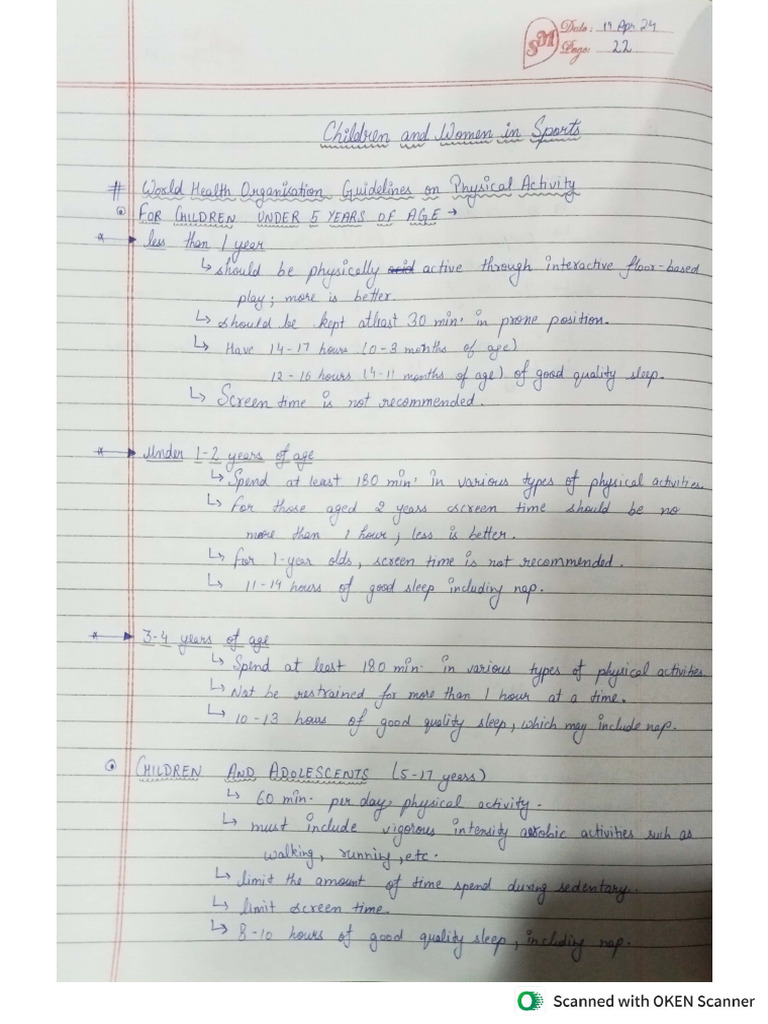 SM
Date: 19 Apr 24
Page: 22
Children and Women in Sports
# World Health Organisation Guidelines on Physical Activity
FOR CHILDREN UNDER 5 YEARS OF AGE →
* → less than 1 year
↳ should be physically acid active through interactive floor-based
play; more is better.
↳ should be kept atleast 30 min. in prone position.
↳ Have 14-17 hours (0-3 months of age)
12-16 hours (4-11 months of age) of good quality sleep.
↳ Screen time is not recommended.
* → Under 1-2 years of age
↳ Spend at least 180 min. in various types of physical activities.
↳ for those aged 2 years screen time should be no
more than 1 hour, less is better.
↳ for 1-year olds, screen time is not recommended.
↳ 11-14 hours of good sleep including nap.
* → 3-4 years of age
↳ Spend at least 180 min. in various types of physical activities.
↳ Not be restrained for more than 1 hour at a time.
↳ 10-13 hours of good quality sleep, which may include nap.
CHILDREN AND ADOLESCENTS (5-17 years)
↳ 60 min. per day, physical activity.
↳ must include vigorous intensity aerobic activities such as
walking, running, etc.
↳ limit the amount of time spend during sedentary.
↳ limit screen time.
↳ 8-10 hours of good quality sleep, including nap.
Scanned with OKEN Scanner